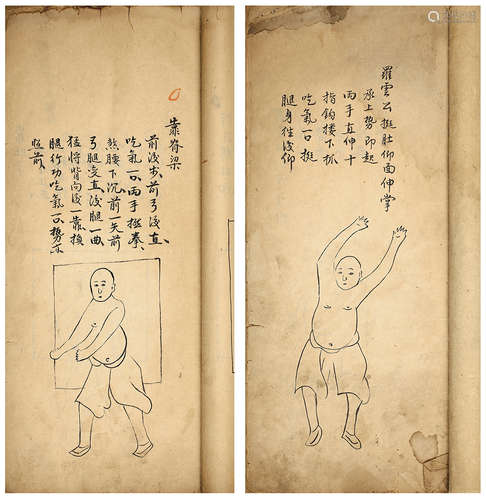 靠脊梁
前浅步前弓浅直
吃氣一口两手搓拳
然腰下沉前一矢前
弓腿变直浅腿一曲
猛將背向浅一靠换
腿行功吃氣一口势亦
照前
羅雲公挺肚仰面伸掌
承上势即起
两手直伸十
指鈎搂下抓
吃氣一口挺
腿身往浅仰